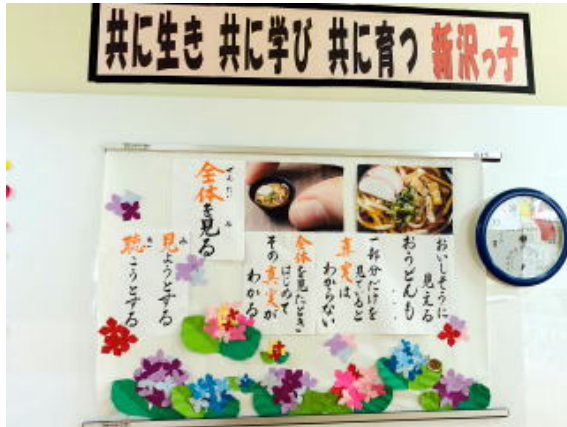 共に生き 共に学び 共に育つ 新沢っ子
おいしそうに
見える
おうどんも
・・・
一部分だけを
見ていると
真実は
わからない
全体を見たとき
はじめて
その真実が
わかる
ぜんたい み
全体を見る
み
見ようとする
き
聴こうとする